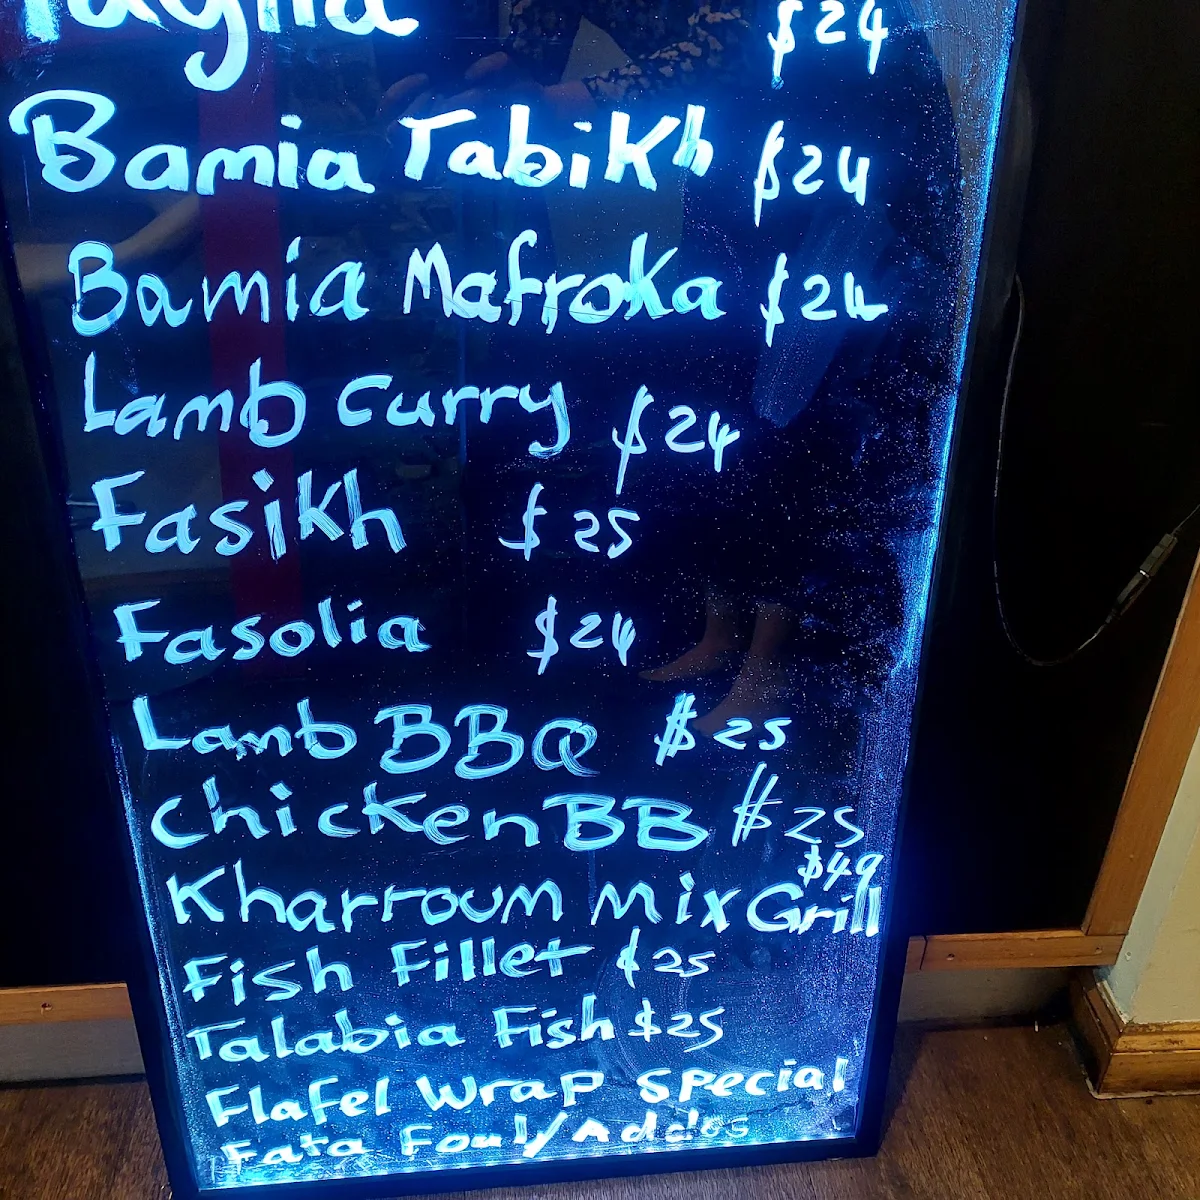 $24
Bamia Tabikh $24
Bamia Mafroka $24
Lamb Curry $24
Fasikh $25
Fasolia $24
Lamb BBQ $25
Chicken BB $25
$49
Kharroum mix Grill
Fish Fillet $25
Talabia Fish $25
Flafel Wrap special
Fata Foul/Addos